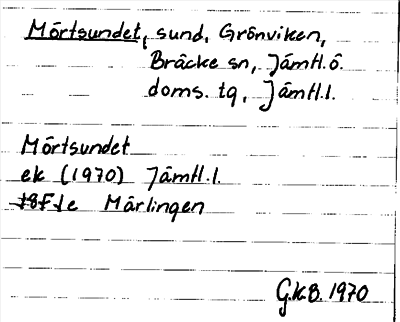 Mörtsundet, sund, Grönviken,
Bräcke sn, Jämtl.ö.
doms. tg, Jämtl.l.
Mörtsundet
ek (1970) Jämtl.l.
18F1e Märlingen
G.K.B. 1970